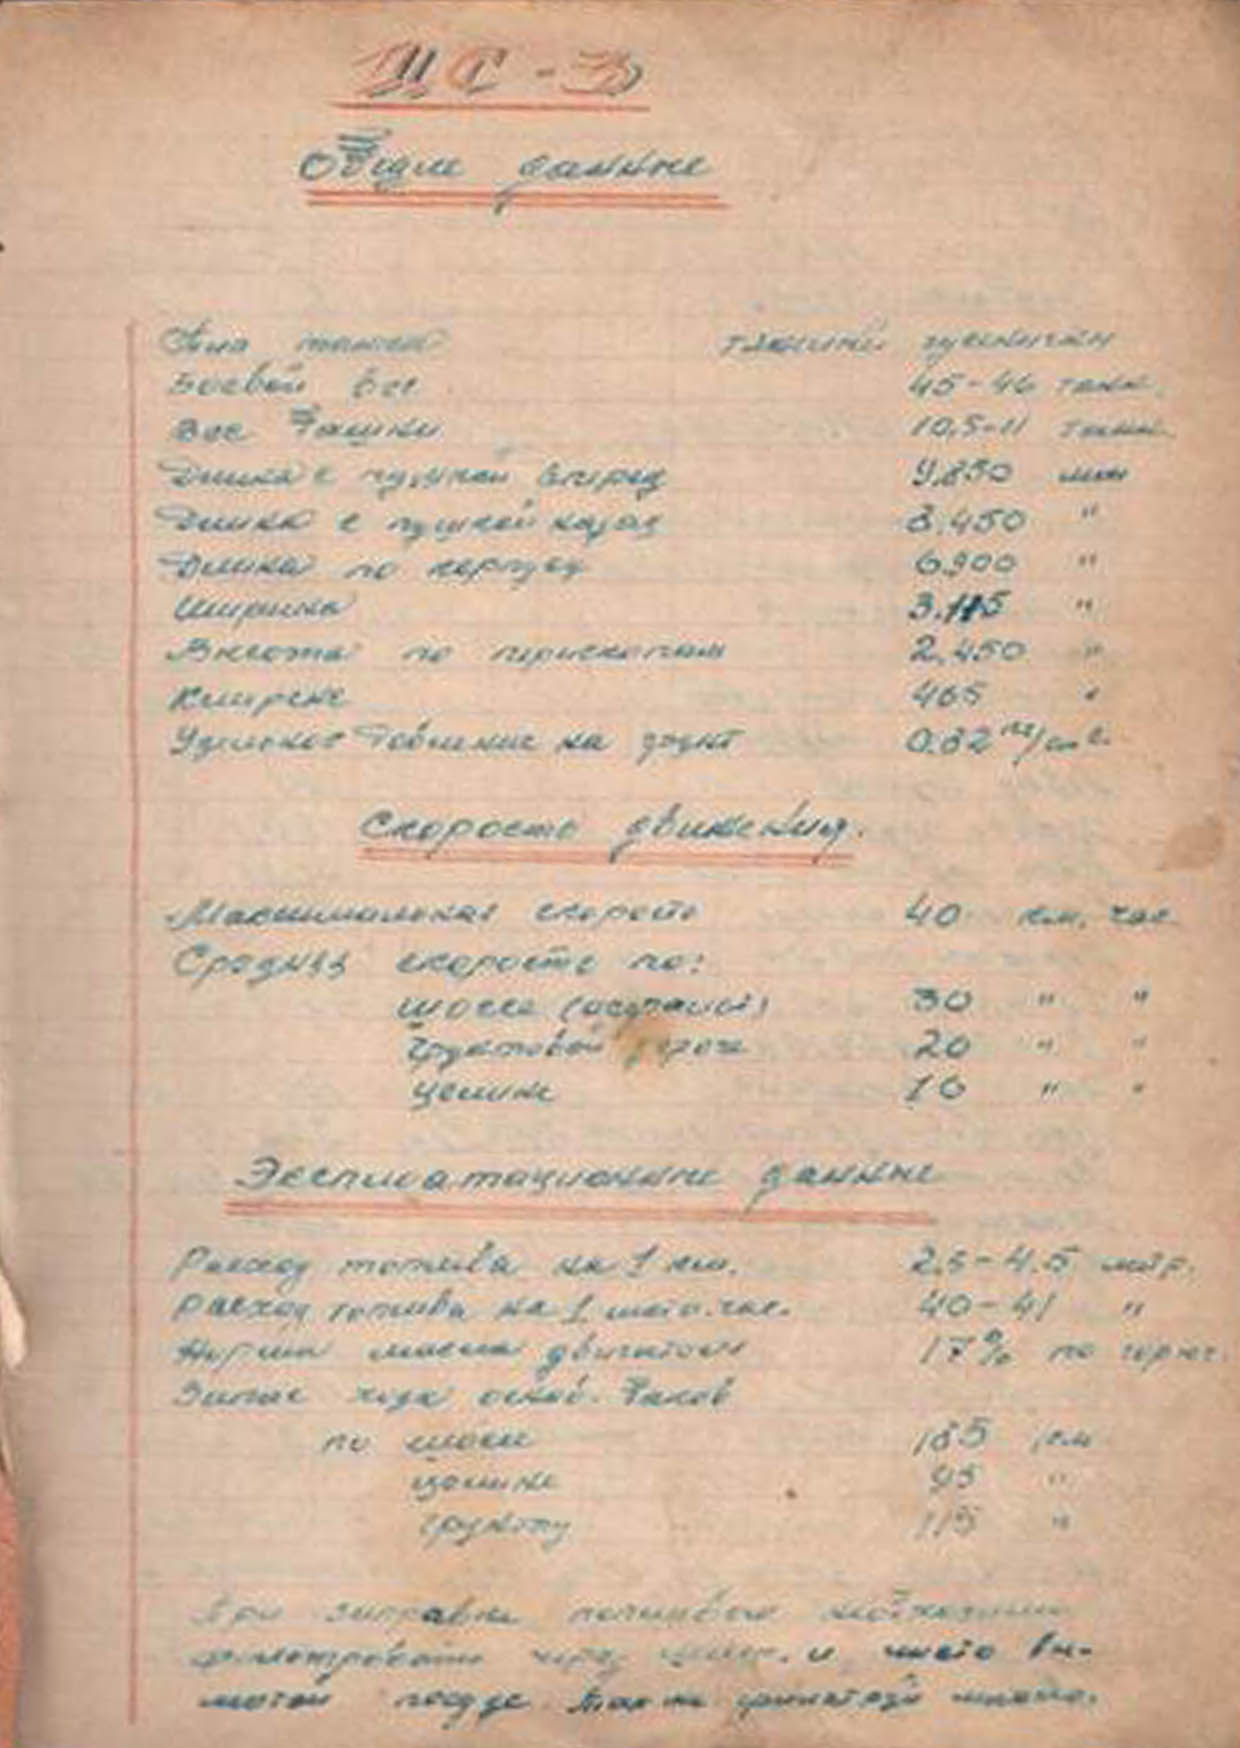 ИС-3
Общие данные
Тип танка тяжелый гусеничн
Боевой вес 45-46 тонн.
Вес башни 10,5-11 тонн.
Длина с пушкой вперед 9.850 мм
Длина с пушкой назад 8.450 "
Длина по корпусу 6.900 "
Ширина 3.115 "
Высота по перископам 2.450 "
Клиренс 465 "
Удельное давление на грунт 0.82 кг/см2.
Скорость движения.
Максимальная скорость 40 км. час
Средняя скорость по:
шоссе (асфальт) 30 " "
грунтовой дороге 20 " "
целине 10 " "
Эксплоатационные данные
Расход топлива на 1 км. 2.5-4.5 литр.
Расход топлива на 1 мото.час. 40-41 "
Норма масла двигателя 17% по горюч.
Запас хода основ. баков
по шоссе 185 км
целине 95 "
грунту 115 "
При заправки топливо необходимо
фильтровать через и чисто вы-
мотой посуде. Так же фильтруй масло.